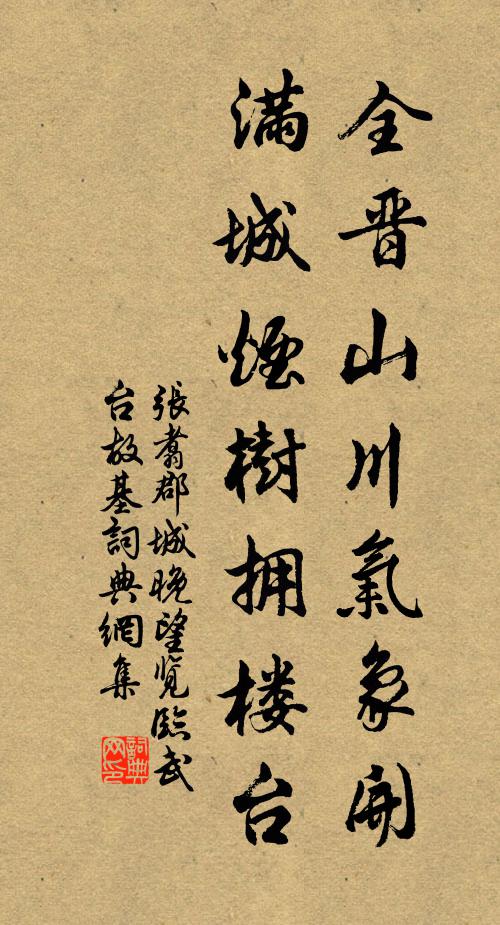 全晋山川氣象開
滿城煙樹拥楼台
張翥郡城晚望覽臨武
台故基詞典網集
詞典网印